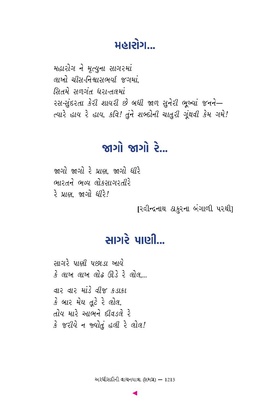 મહારોગ...
મહારોગ ને મૃત્યુના સાગરમાં
લાખો ચીસ-નિશ્વાસભર્યા જગમાં,
ક્ષિતિજે સળગંત ધરા-તલમાં
રસ-સુંદરતા કેરી શાયરી છે બધી જાળ સુનેરી ભૂખ્યાં જનને—
ત્યારે હાય રે હાય, કવિ! તુંને શબ્દોની ચાતુરી ગૂંથવી કેમ ગમે!
જાગો જાગો રે...
જાગો જાગો રે પ્રાણ, જાગો ધીરે
ભારતને ભવ્ય લોકસાગરતીરે
રે પ્રાણ, જાગો ધીરે!
[રવીન્દ્રનાથ ઠાકુરના બંગાળી પરથી]
સાગરે પાણી...
સાગરે પાણી પછાડા ખાવે
કે લાખ લાખ લોઢ ઊડે રે લોલ,...
વાર વાર માંડે વીજ કડાકા
કે બાર મેઘ તૂટે રે લોલ.
તોય મારે આભને દીવડલે રે
કે જરીયે ન જ્યોતું હલી રે લોલ!
અરધીસદીની વાચનયાત્રા (સમગ્ર) — 1213